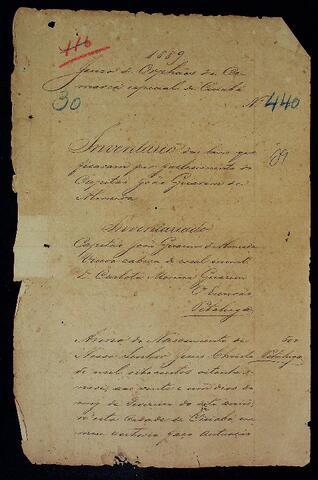 116
1889
Juizo de Orphãos da Co-
marca especial de Cuiabá
30
Nº 440
Inventario dos bens que
ficaram por fallecimento do
Capitão João Guarim de
Almeida
89
Inventariado
Capitão João Guarim d'Almeida
Viuva cabeça de casal
D. Carlota Guarim
O Escrivão
Anno do Nascimento de
Nosso Senhor Jesus Christo
de mil oitocentos oitenta e
aos vinte e um dias do
mez de do dito anno,
n'esta Cidade de Cuiabá, em
meu cartorio faço autuação